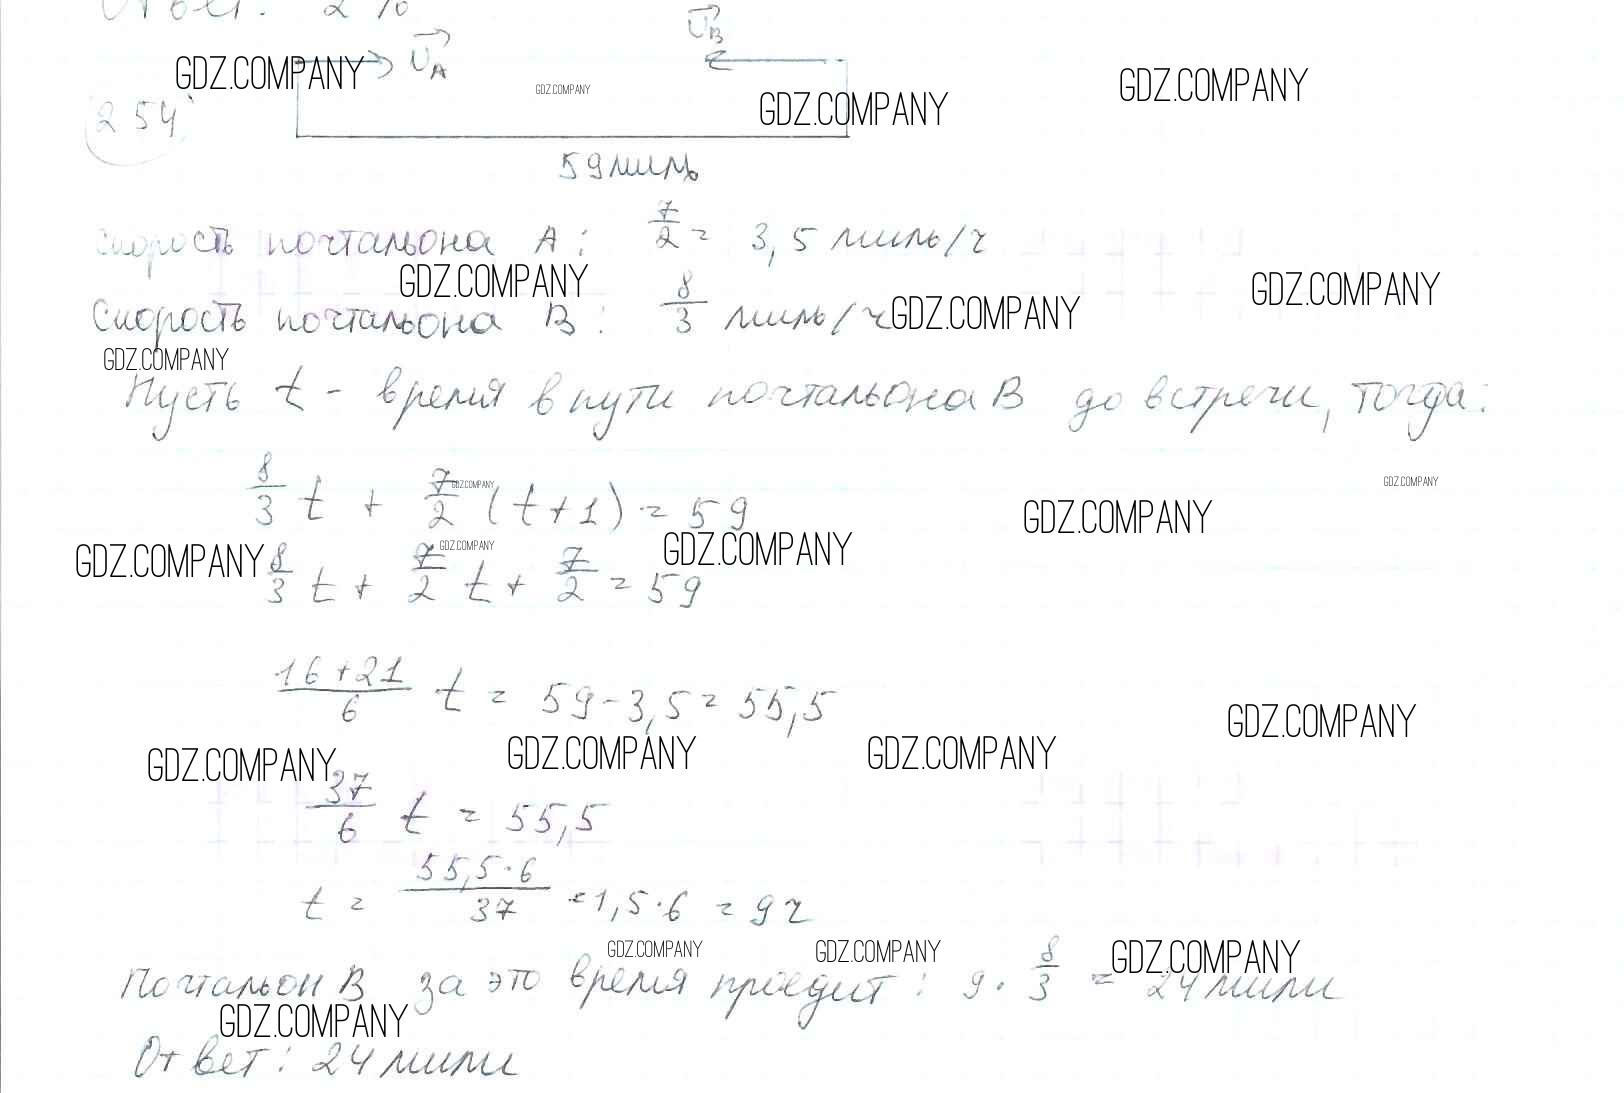 Ответ: 2
U_A U_B
GDZ.COMPANY GDZ.COMPANY GDZ.COMPANY GDZ.COMPANY
254
59 миль
Скорость почтальона А: 7/2 = 3,5 миль/ч
GDZ.COMPANY GDZ.COMPANY
Скорость почтальона В: 8/3 миль/ч GDZ.COMPANY
GDZ.COMPANY
Пусть t - время в пути почтальона В до встречи, тогда:
8/3 t + 7/2 (t+1) = 59
GDZ.COMPANY GDZ.COMPANY GDZ.COMPANY
GDZ.COMPANY GDZ.COMPANY GDZ.COMPANY
8/3 t + 7/2 t + 7/2 = 59
(16+21)/6 t = 59 - 3,5 = 55,5
GDZ.COMPANY GDZ.COMPANY GDZ.COMPANY GDZ.COMPANY
37/6 t = 55,5
t = (55,5·6)/37 = 1,5·6 = 9ч
GDZ.COMPANY GDZ.COMPANY GDZ.COMPANY
Почтальон В за это время проедит: 9 · 8/3 = 24 мили
GDZ.COMPANY
Ответ: 24 мили